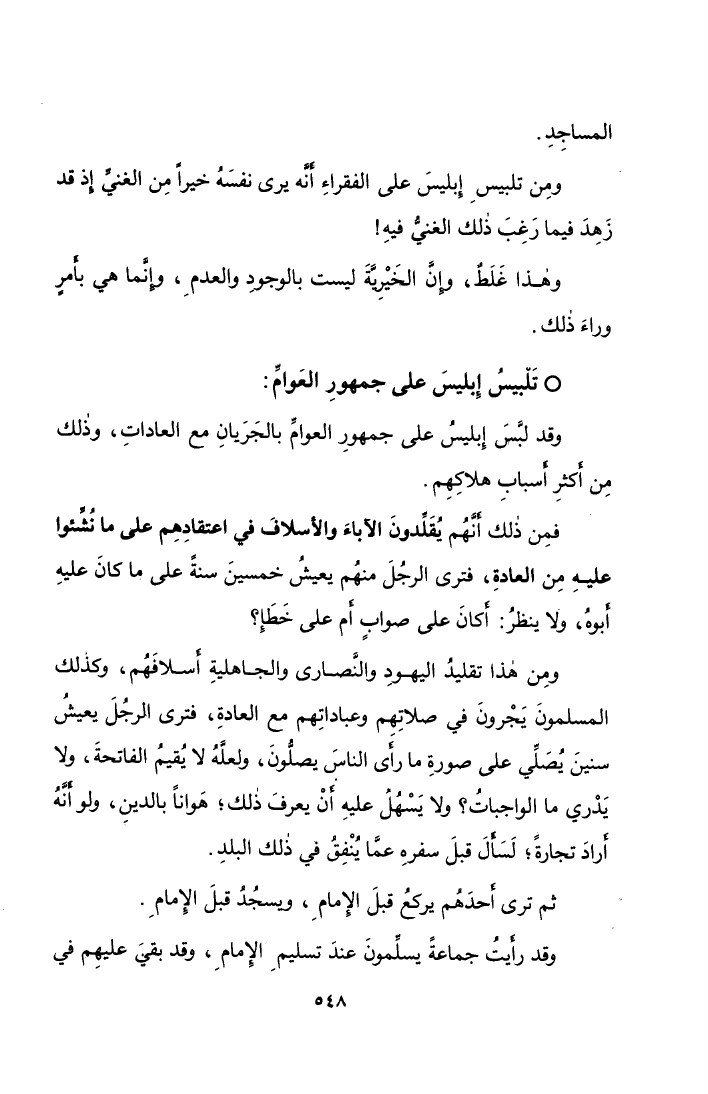 المساجِدِ.
ومِن تلبيسِ إبليسَ على الفقراءِ أَنَّه يرى نفسَهُ خيراً مِن الغنيِّ إِذ قد
زَهِدَ فيما رَغِبَ ذٰلك الغنيُّ فيهِ!
وهٰـذا غَلَطٌ، وإِنَّ الخَيْرِيَّةَ ليست بالوجودِ والعدمِ، وإِنَّما هي بأَمرٍ
وراءَ ذٰلك.
○ تَلْبيسُ إِبليسَ على جمهورِ العَوامِّ:
وقد لبَّسَ إِبليسُ على جمهورِ العوامِّ بالجَرَيانِ مع العاداتِ، وذٰلك
مِن أَكثرِ أَسبابِ هلاكِهِم.
فمِن ذٰلك أَنَّهُم يُقَلِّدونَ الآباءَ والأسلافَ في اعتقادِهِم على ما نُشِّئوا
عليـهِ مِن العادةِ، فترى الرجُلَ منهُم يعيشُ خمسينَ سنةً على ما كانَ عليهِ
أَبوهُ، ولا ينظرُ: أَكانَ على صوابٍ أَم على خَطَإٍ؟
ومِن هٰذا تقليدُ اليهـودِ والنَّصـارى والجـاهليةِ أَسـلافَهُم، وكذلك
المسلمونَ يَجْرونَ في صلاتِهِم وعباداتِهم مع العادةِ، فترى الرجُلَ يعيشُ
سنينَ يُصَلِّي على صورةِ ما رأَى الناسَ يصلُّونَ، ولعلَّهُ لا يُقيمُ الفاتحةَ، ولا
يَدْري ما الواجباتُ؟ ولا يَسْهُلُ عليهِ أَنْ يعرفَ ذٰلك؛ هَواناً بالدينِ، ولو أَنَّهُ
أَرادَ تجارةً؛ لَسَأَلَ قبلَ سفرهِ عمَّا يُنْفِقُ في ذٰلك البلدِ.
ثم ترى أَحدَهُم يركعُ قبلَ الإِمامِ، ويسجُدُ قبلَ الإِمامِ.
وقد رأَيتُ جماعةً يسلِّمونَ عندَ تسليمِ الإِمامِ، وقد بقيَ عليهِم في
٥٤٨